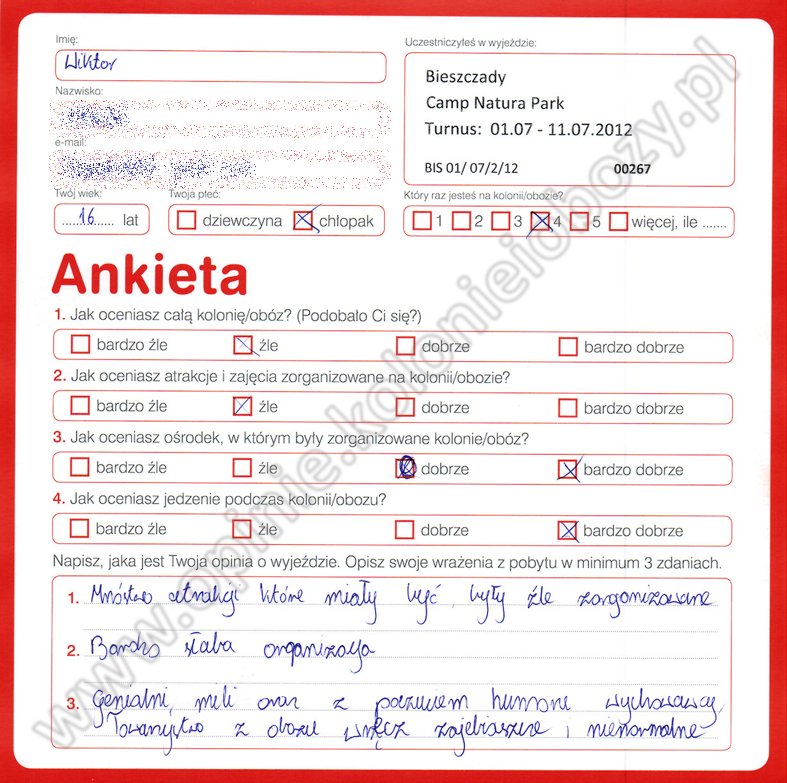 Imię:
Wiktor
Uczestniczyłeś w wyjeździe:
Bieszczady
Camp Natura Park
Turnus: 01.07 - 11.07.2012
BIS 01/ 07/2/12 00267
Nazwisko:
e-mail:
Twój wiek:
16 lat
Twoja płeć:
dziewczyna chłopak
Który raz jesteś na kolonii/obozie?
1 2 3 4 5 więcej, ile .......
Ankieta
1. Jak oceniasz całą kolonię/obóz? (Podobało Ci się?)
bardzo źle źle dobrze bardzo dobrze
2. Jak oceniasz atrakcje i zajęcia zorganizowane na kolonii/obozie?
bardzo źle źle dobrze bardzo dobrze
3. Jak oceniasz ośrodek, w którym były zorganizowane kolonie/obóz?
bardzo źle źle dobrze bardzo dobrze
4. Jak oceniasz jedzenie podczas kolonii/obozu?
bardzo źle źle dobrze bardzo dobrze
Napisz, jaka jest Twoja opinia o wyjeździe. Opisz swoje wrażenia z pobytu w minimum 3 zdaniach.
1. Mnóstwo atrakcji które miały być, były źle zorganizowane
2. Bardzo słaba organizacja
3. Genialni, mili oraz z poczuciem humoru wychowawcy,
Towarzystwo z obozu wręcz zajebiaszcze i nienormalne
www.opinie.kolonieiobozy.pl